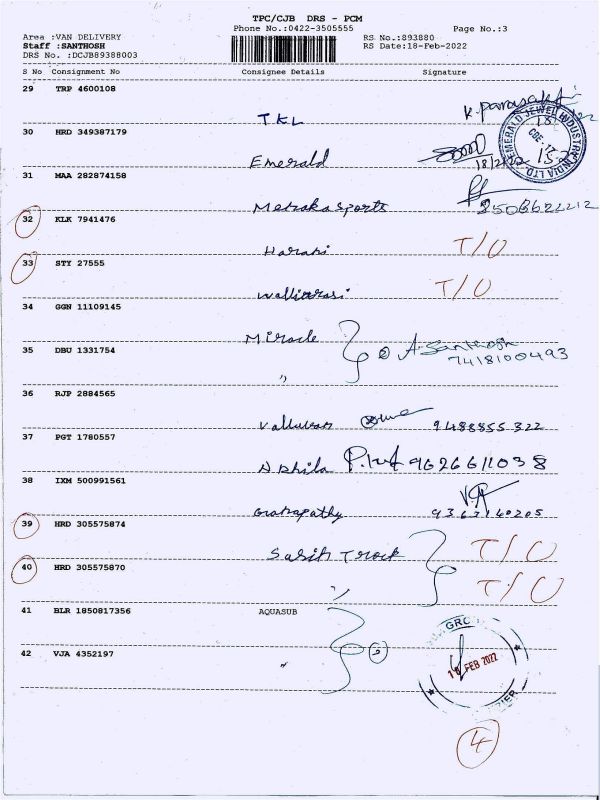 TPC/CJB DRS - PCM
Phone No.:0422-3505555
Page No.:3
Area :VAN DELIVERY
RS No.:893880
Staff :SANTHOSH
RS Date:18-Feb-2022
DRS No. :DCJB89388003
S No Consignment No Consignee Details Signature
29 TRP 4600108
TKL
30 HRD 349387179
Emerald
31 MAA 282874158
Metraka sports
32 KLK 7941476
T/O
33 STY 27555
T/O
34 GGN 11109145
Miracle
A. Santhosh
35 DBU 1331754
7418100493
"
36 RJP 2884565
Valluvan
9488855322
37 PGT 1780557
Akhila 9626611038
38 IXM 500991561
9363140205
39 HRD 305575874
T/O
40 HRD 305575870
T/O
"
41 BLR 1850817356 AQUASUB
42 VJA 4352197
"
FEB 2022
4
EMERALD JEWEL INDUSTRY INDIA LTD